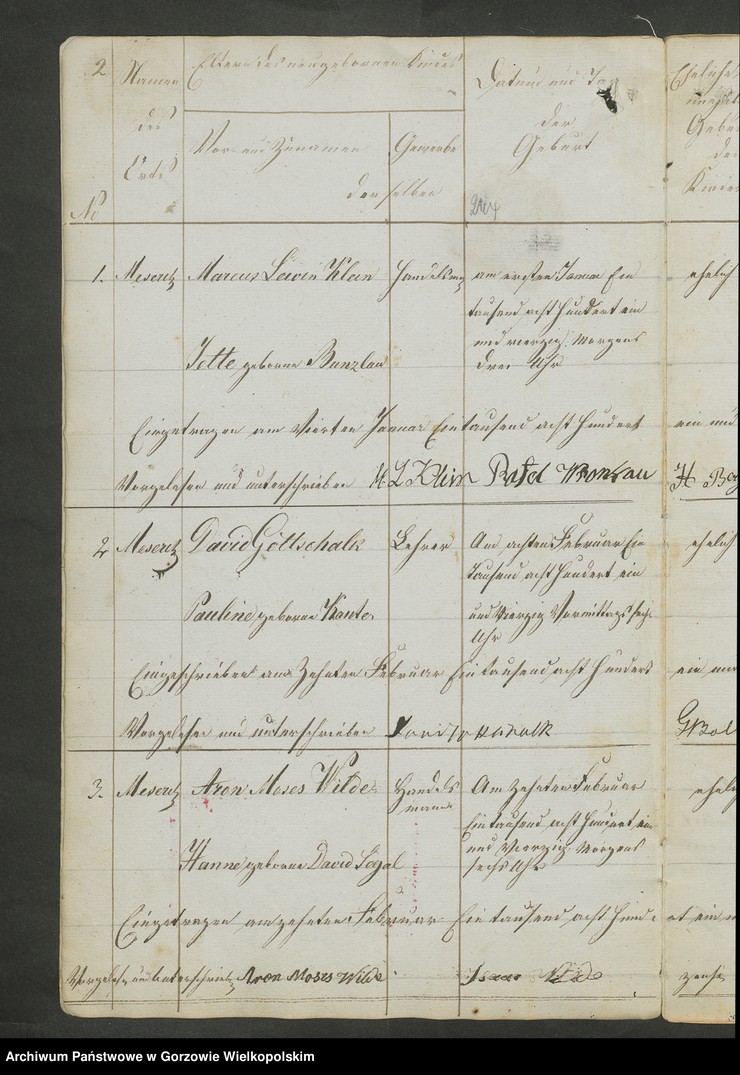 2 Namen Eltern des neugebornen Kindes Datum und Ta Eheliche
des der
Orts Vor- und Zunamen Gewerbe Geburt Gebu
derselben Kindes
No
1. Meseritz Marcus Lewin Klein Handelsm am ersten Januar Ein ehelich
tausend acht hundert ein
und vierzig Morgens
Jette geborne Bunzlau drei Uhr
Eingetragen am Vierten Januar Eintausend acht hundert ein und
Vorgelesen und unterschrieben H L Klein Wronkau H
2 Meseritz David Gottschalk Lehrer Am achten Februar Ein ehelich
tausend acht hundert ein
Pauline geborne Kante und Vierzig Vormittags sechs
Uhr
Eingeschrieben am Zehnten Februar Ein tausend acht hundert ein und
Vorgelesen und unterschrieben
3. Meseritz Aron Moses Wilde Handels Am Zehnten Februar ehel
mann Ein tausend acht hundert ein
und Vierzig Morgens
Hanne geborne David Segal sechs Uhr
Eingetragen am zehnten Februar Ein tausend acht hundert ein
Vorgelesen und unterschrieb Aron Moses Wilde Isaac Wilde
Archiwum Państwowe w Gorzowie Wielkopolskim